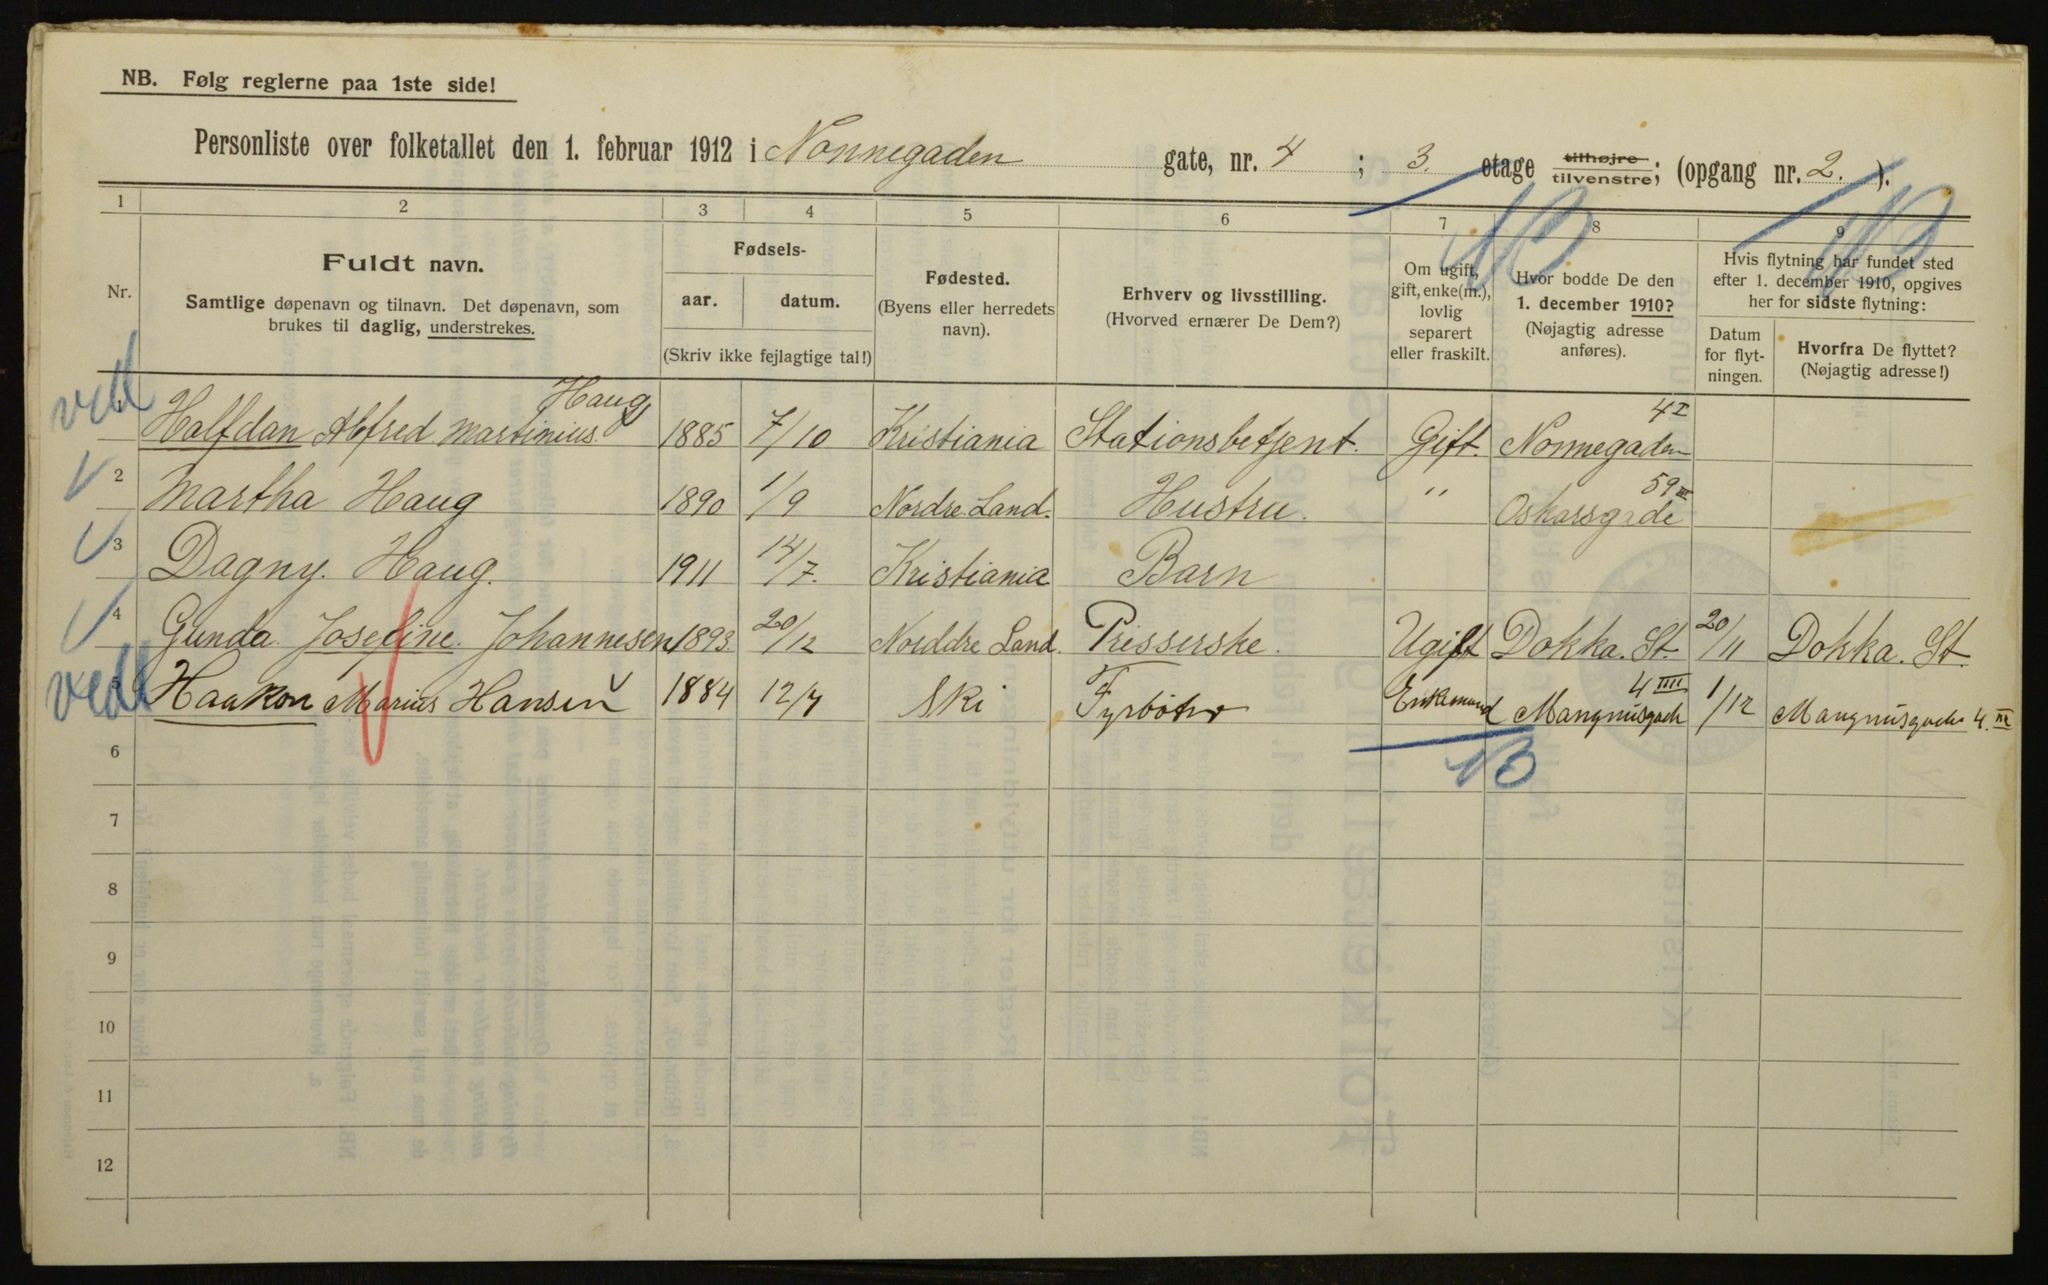 NB. Følg reglerne paa 1ste side!
Personliste over folketallet den 1. februar 1912 i Nonnegaden gate, nr. 4 ; 3. etage tilhøjre tilvenstre; (opgang nr. 2. ).
1 2 3 4 5 6 7 8 9
Nr.
Fuldt navn.
Samtlige døpenavn og tilnavn. Det døpenavn, som
brukes til daglig, understrekes.
Fødsels-
aar. datum.
(Skriv ikke fejlagtige tal!)
Fødested.
(Byens eller herredets
navn).
Erhverv og livsstilling.
(Hvorved ernærer De Dem?)
Om ugift,
gift, enke(m.),
lovlig
separert
eller fraskilt.
Hvor bodde De den
1. december 1910?
(Nøjagtig adresse
anføres).
Hvis flytning har fundet sted
efter 1. december 1910, opgives
her for sidste flytning:
Datum
for flyt-
ningen.
Hvorfra De flyttet?
(Nøjagtig adresse!)
Haug 4 I
Halfdan Alfred Martinius. 1885 7/10 Kristiania Stationsbetjent. Gift. Nonnegaden
59 III
2 Martha Haug 1890 1/9 Nordre Land. Hustru. " Oskarsgade
3 Dagny. Haug. 1911 14/7. Kristiania Barn
4 Gunda. Josefine. Johannesen 1893. 20/12 Norddre Land. Presserske. Ugift Dokka. St. 20/11 Dokka. St.
4 IIII
5 Haakon Marius Hansen 1884 12/7 Ski Fyrbøter Enkemand Mangnusgade 1/12 Mangnusgade 4. III
6
7
8
9
10
11
12